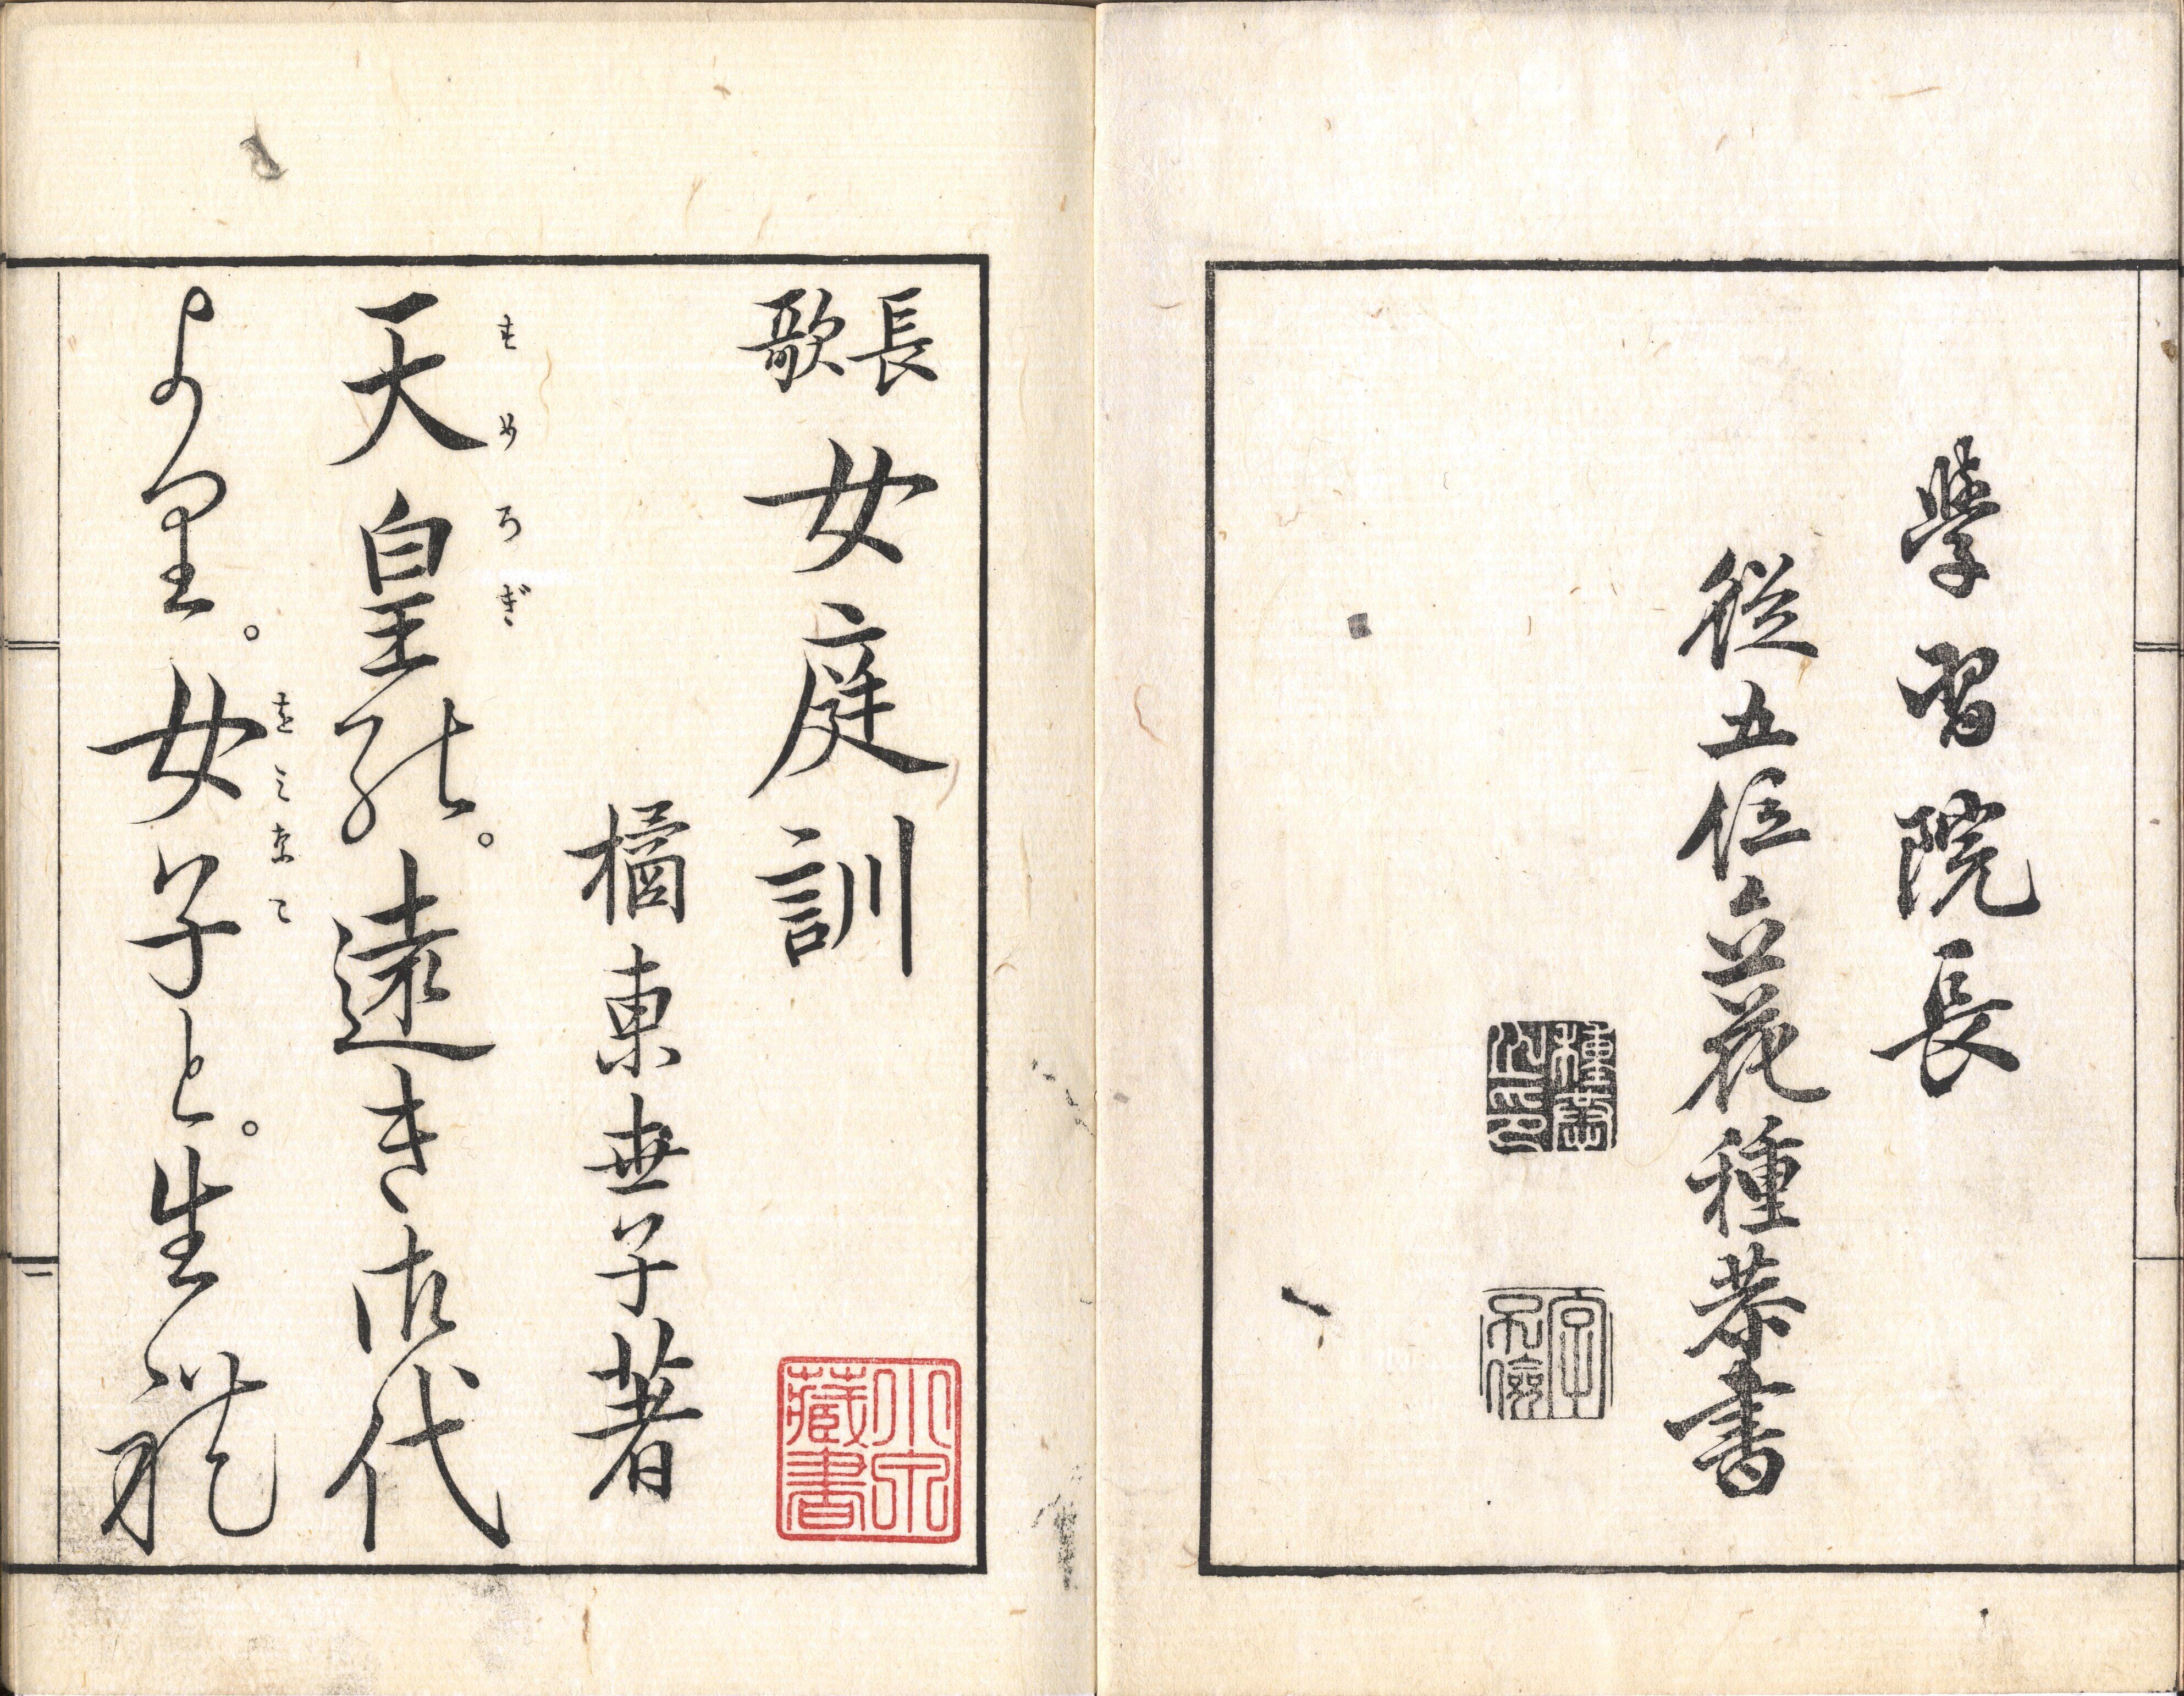 學習院長
從五位立花種恭書
種恭之印
長歌 女庭訓
橘東世子著
すめろぎ
天皇の。遠き御代
をみなこ
より。女子と。生れ
藏書